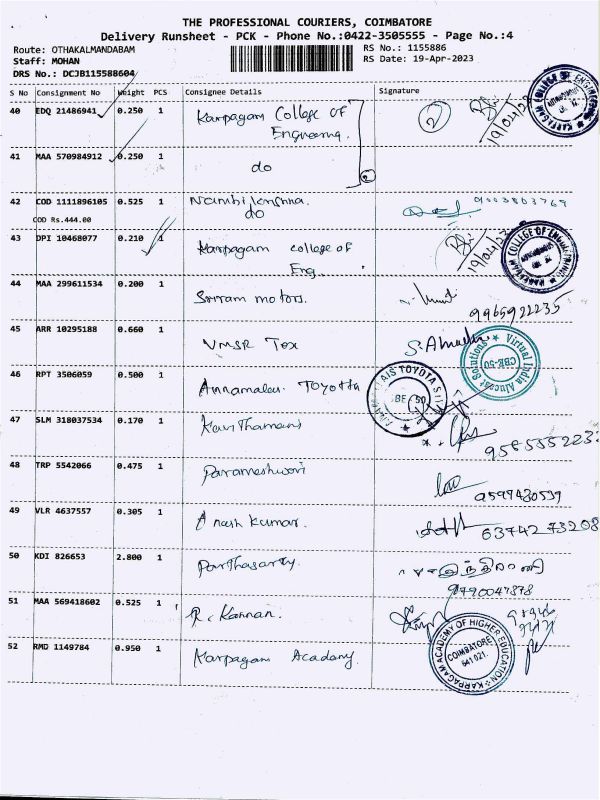 THE PROFESSIONAL COURIERS, COIMBATORE
Delivery Runsheet - PCK - Phone No.:0422-3505555 - Page No.:4
Route: OTHAKALMANDABAM
RS No.: 1155886
Staff: MOHAN
RS Date: 19-Apr-2023
DRS No.: DCJB115588604
S No Consignment No Weight PCS Consignee Details Signature
40 EDQ 21486941 0.250 1 Karpagam College of
Engineering. 2 19/04/23
41 MAA 570984912 0.250 1 do 2
42 COD 1111896105 0.525 1 Nambi krishna. 9003803769
COD Rs.444.00 do
43 DPI 10468077 0.210 1 Karpagam college of
Eng. 19/04/23
KARPAGAM COLLEGE OF ENGINEERING
44 MAA 299611534 0.200 1 Sriram motors. 9965922235
45 ARR 10295188 0.660 1 VMSR Tex
Virtual India Solutions CBE-50
46 RPT 3506059 0.500 1 Annamalai Toyotta
TOYOTA
47 SLM 318037534 0.170 1 Kavithamani
48 TRP 5542066 0.475 1 Parameshwari 9597480539
49 VLR 4637557 0.305 1 Anash Kumar. 6374273208
50 KDI 826653 2.800 1 Parthasarty.
51 MAA 569418602 0.525 1 R. Kannan.
52 RMD 1149784 0.950 1 Karpagam Acadamy.
KARPAGAM ACADEMY OF HIGHER EDUCATION
COIMBATORE
641 021.